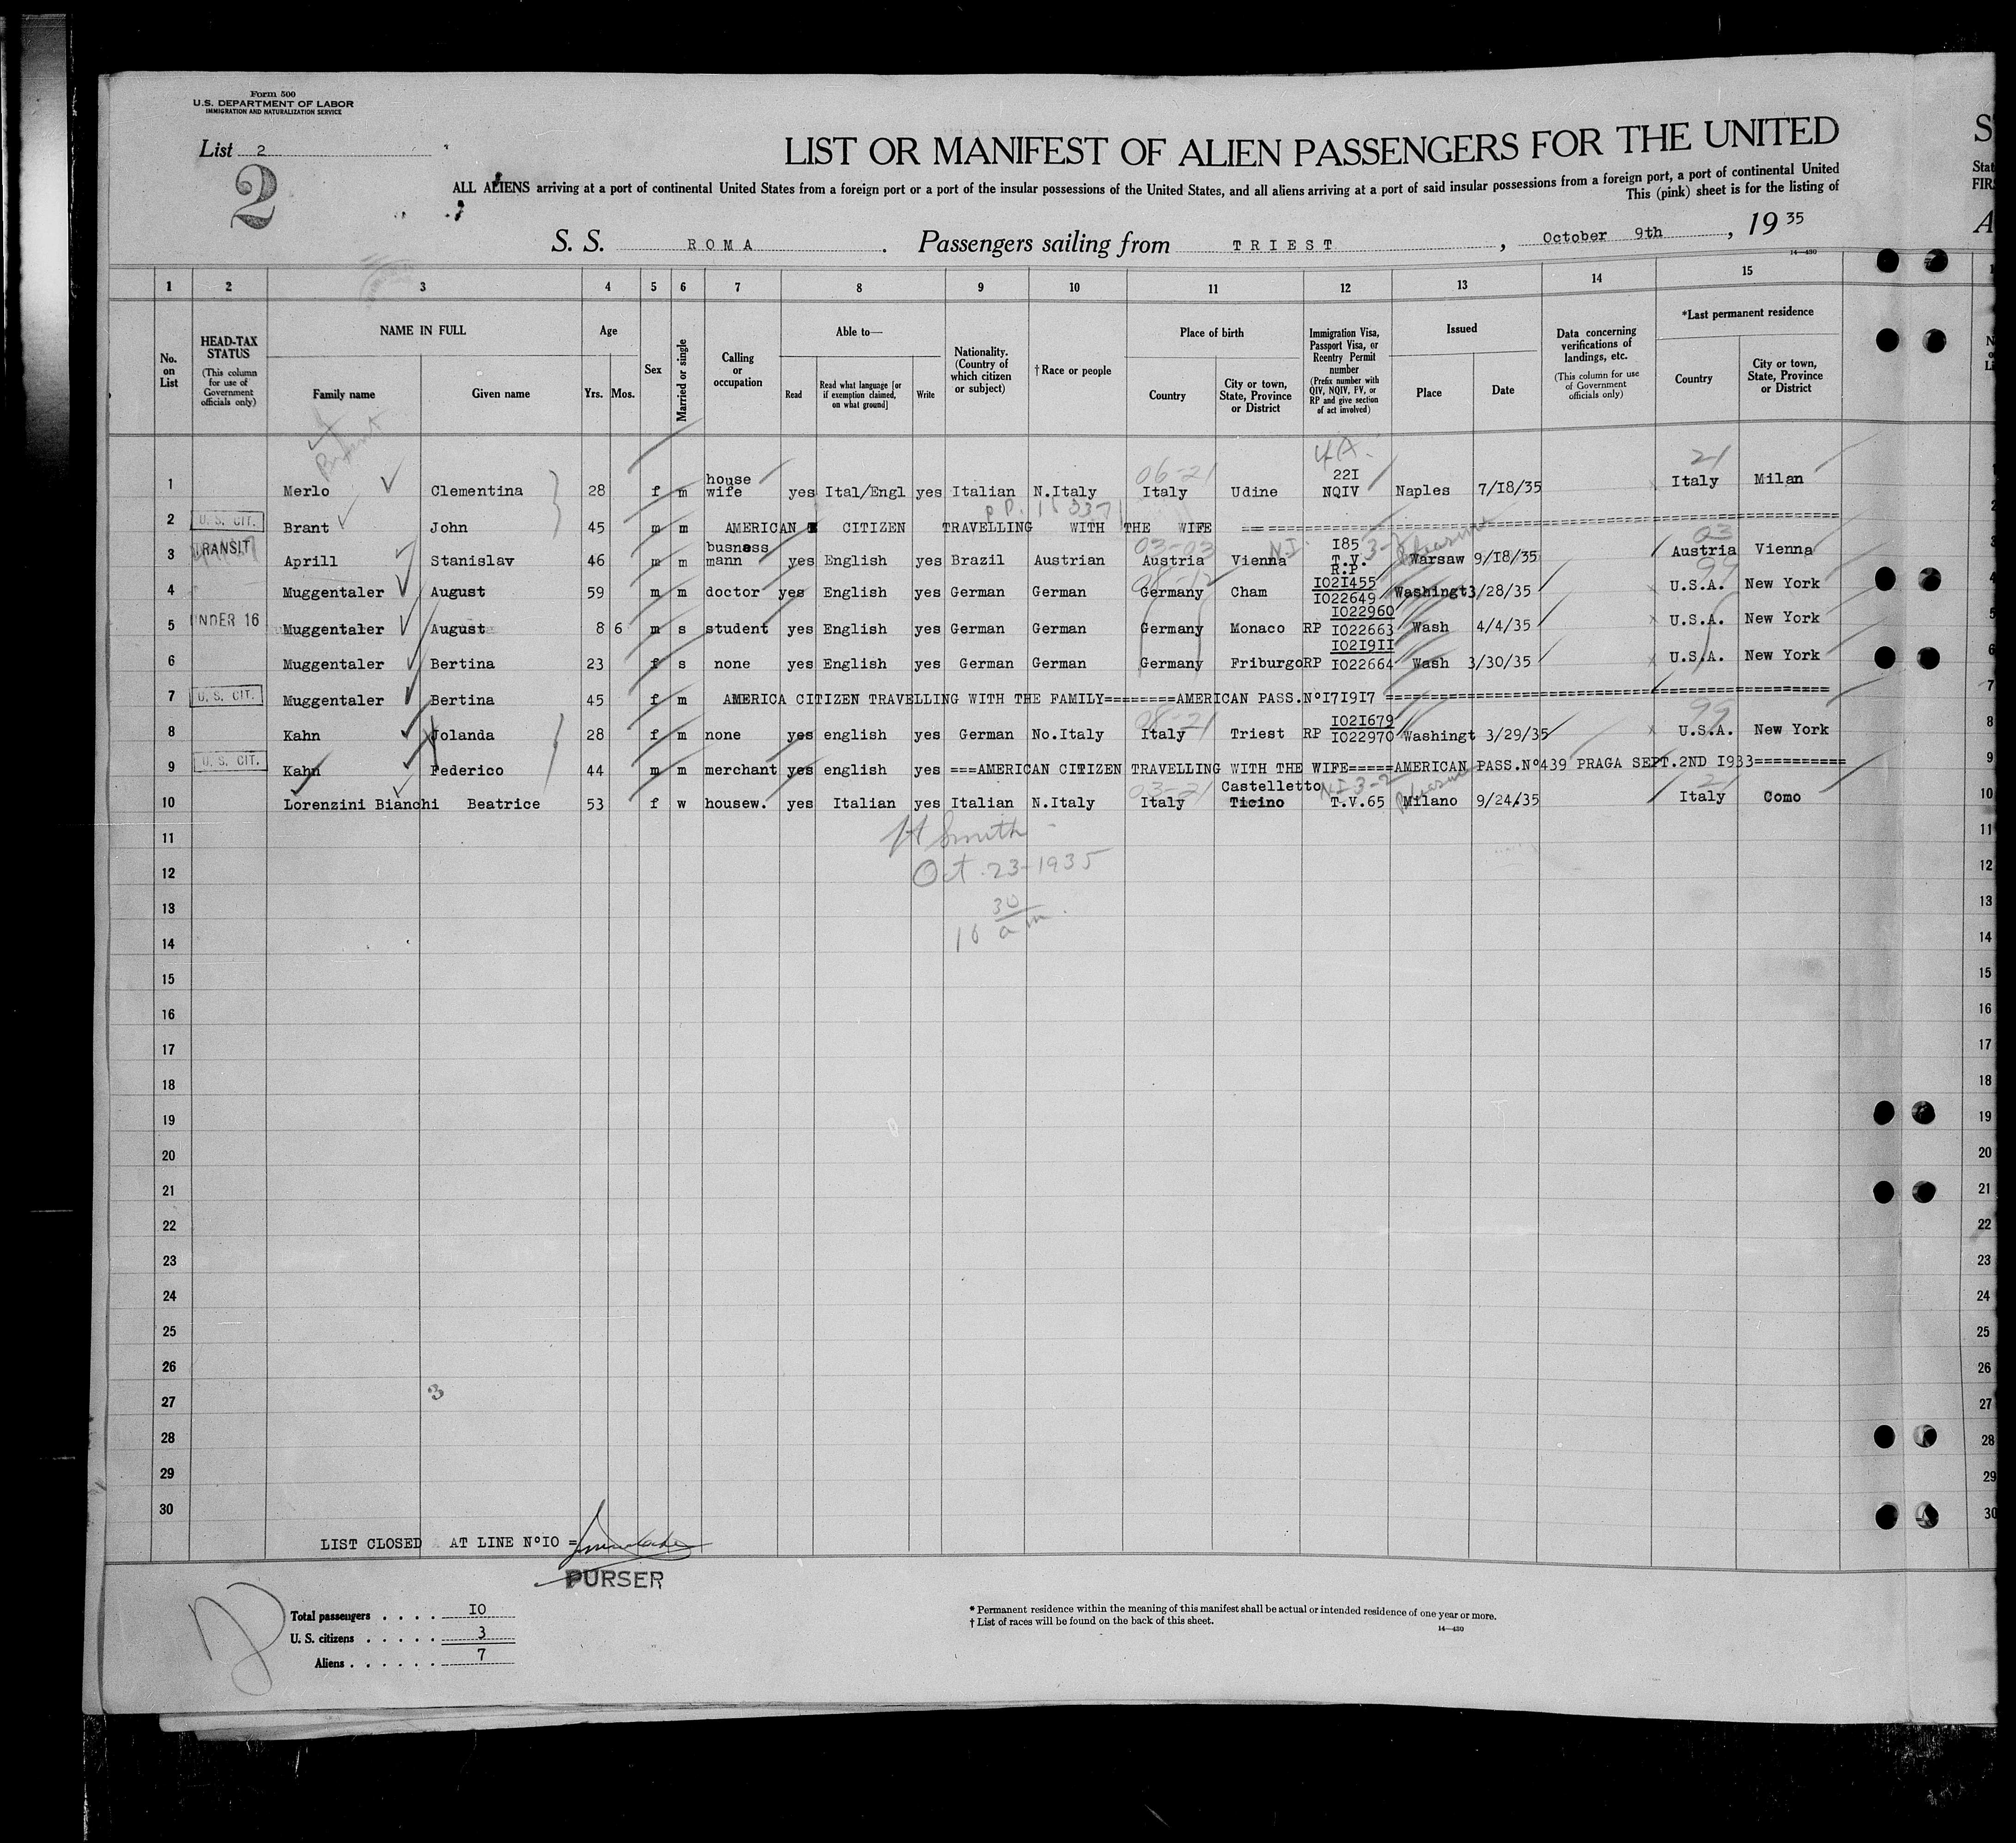 Form 500
U.S. DEPARTMENT OF LABOR
IMMIGRATION AND NATURALIZATION SERVICE
List 2
2
LIST OR MANIFEST OF ALIEN PASSENGERS FOR THE UNITED
S
ALL ALIENS arriving at a port of continental United States from a foreign port or a port of the insular possessions of the United States, and all aliens arriving at a port of said insular possessions from a foreign port, a port of continental United
This (pink) sheet is for the listing of
S. S. ROMA. Passengers sailing from TRIEST, October 9th, 19 35
14—430
1 2 3 4 5 6 7 8 9 10 11 12 13 14 15
No. on List
HEAD-TAX STATUS
(This column for use of Government officials only)
NAME IN FULL
Family name Given name
Age
Yrs. Mos.
Sex
Married or single
Calling or occupation
Able to—
Read
Read what language [or if exemption claimed, on what ground]
Write
Nationality. (Country of which citizen or subject)
†Race or people
Place of birth
Country
City or town, State, Province or District
Immigration Visa, Passport Visa, or Reentry Permit number
(Prefix number with QIV, NQIV, PV, or RP and give section of act involved)
Issued
Place Date
Data concerning verifications of landings, etc.
(This column for use of Government officials only)
*Last permanent residence
Country
City or town, State, Province or District
Brant
4A.
06-21 21
1 Merlo Clementina 28 f m house wife yes Ital/Engl yes Italian N.Italy Italy Udine 22I NQIV Naples 7/I8/35 Italy Milan
2 U. S. CIT. Brant John 45 m m AMERICAN CITIZEN TRAVELLING WITH THE WIFE ==================
03-03 N.I. 3-2 Pleasure 03
3 TRANSIT Aprill Stanislav 46 m m busness mann yes English yes Brazil Austrian Austria Vienna I85 T.V. Warsaw 9/I8/35 Austria Vienna
99
4 Muggentaler August 59 m m doctor yes English yes German German Germany Cham R.P I02I455 I022649 Washingt 3/28/35 U.S.A. New York
5 UNDER 16 Muggentaler August 8 6 m s student yes English yes German German Germany Monaco RP I022960 I022663 Wash 4/4/35 U.S.A. New York
6 Muggentaler Bertina 23 f s none yes English yes German German Germany Friburgo RP I02I9II I022664 Wash 3/30/35 U.S.A. New York
7 U. S. CIT. Muggentaler Bertina 45 f m AMERICA CITIZEN TRAVELLING WITH THE FAMILY========AMERICAN PASS.NºI7I9I7 ==================
08-21 99
8 Kahn Jolanda 28 f m none yes english yes German No.Italy Italy Triest RP I02I679 I022970 Washingt 3/29/35 U.S.A. New York
9 U. S. CIT. Kahn Federico 44 m m merchant yes english yes ===AMERICAN CITIZEN TRAVELLING WITH THE WIFE=====AMERICAN PASS.Nº439 PRAGA SEPT.2ND I933==========
03-21 NI 3-2 Pleasure 21
10 Lorenzini Bianchi Beatrice 53 f w housew. yes Italian yes Italian N.Italy Italy Castelletto Ticino T.V.65 Milano 9/24/35 Italy Como
H Smith
Oct. 23-1935
10 30 am.
11
12
13
14
15
16
17
18
19
20
21
22
23
24
25
26
27
3
28
29
30
LIST CLOSED AT LINE NºIO =
PURSER
Total passengers . . . . IO
U. S. citizens . . . . . 3
Aliens . . . . . . 7
* Permanent residence within the meaning of this manifest shall be actual or intended residence of one year or more.
† List of races will be found on the back of this sheet.
14—430